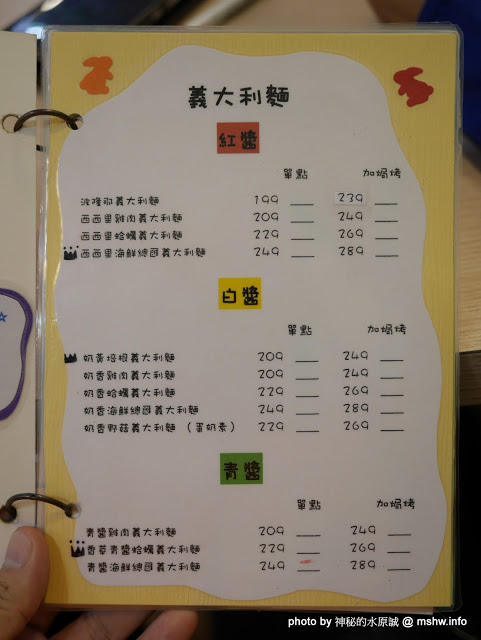 義大利麵
紅醬
單點 加焗烤
波隆那義大利麵 199 239
西西里雞肉義大利麵 209 249
西西里蛤蠣義大利麵 229 269
西西里海鮮總匯義大利麵 249 289
白醬
單點 加焗烤
奶黃培根義大利麵 209 249
奶香雞肉義大利麵 209 249
奶香蛤蠣義大利麵 229 269
奶香海鮮總匯義大利麵 249 289
奶香野菇義大利麵 (蛋奶素) 229 269
青醬
單點 加焗烤
青醬雞肉義大利麵 209 249
香草青醬蛤蠣義大利麵 229 269
青醬海鮮總匯義大利麵 249 289
photo by 神秘的水原誠 @ mshw.info